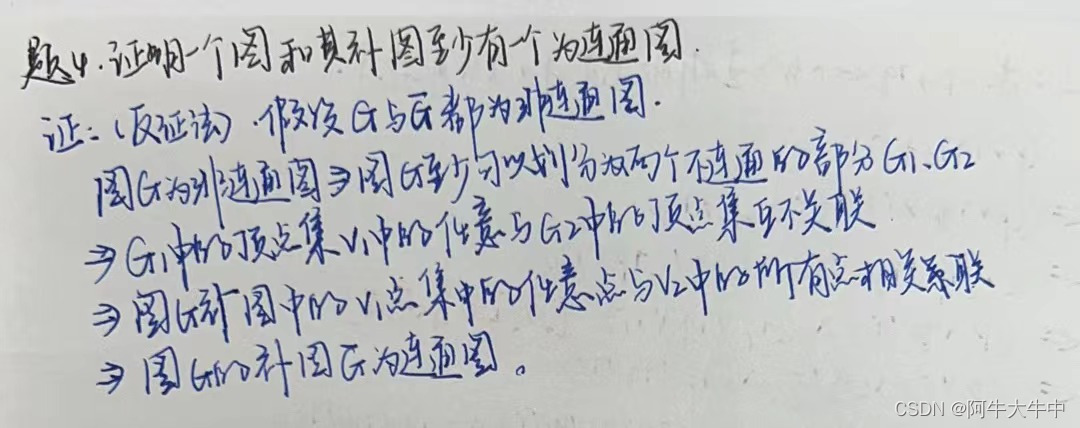 题4.证明一个图和其补图至少有一个为连通图.
证:(反证法).假设G与G̅都为非连通图.
图G为非连通图⇒图G至少可以划分为两个不连通的部分G1、G2
⇒G1中的顶点集V1中的任意与G2中的顶点集互不关联
⇒图G补图中的V1点集中的任意点与V2中的所有点相关系联
⇒图G的补图G̅为连通图。
CSDN @阿牛大牛中